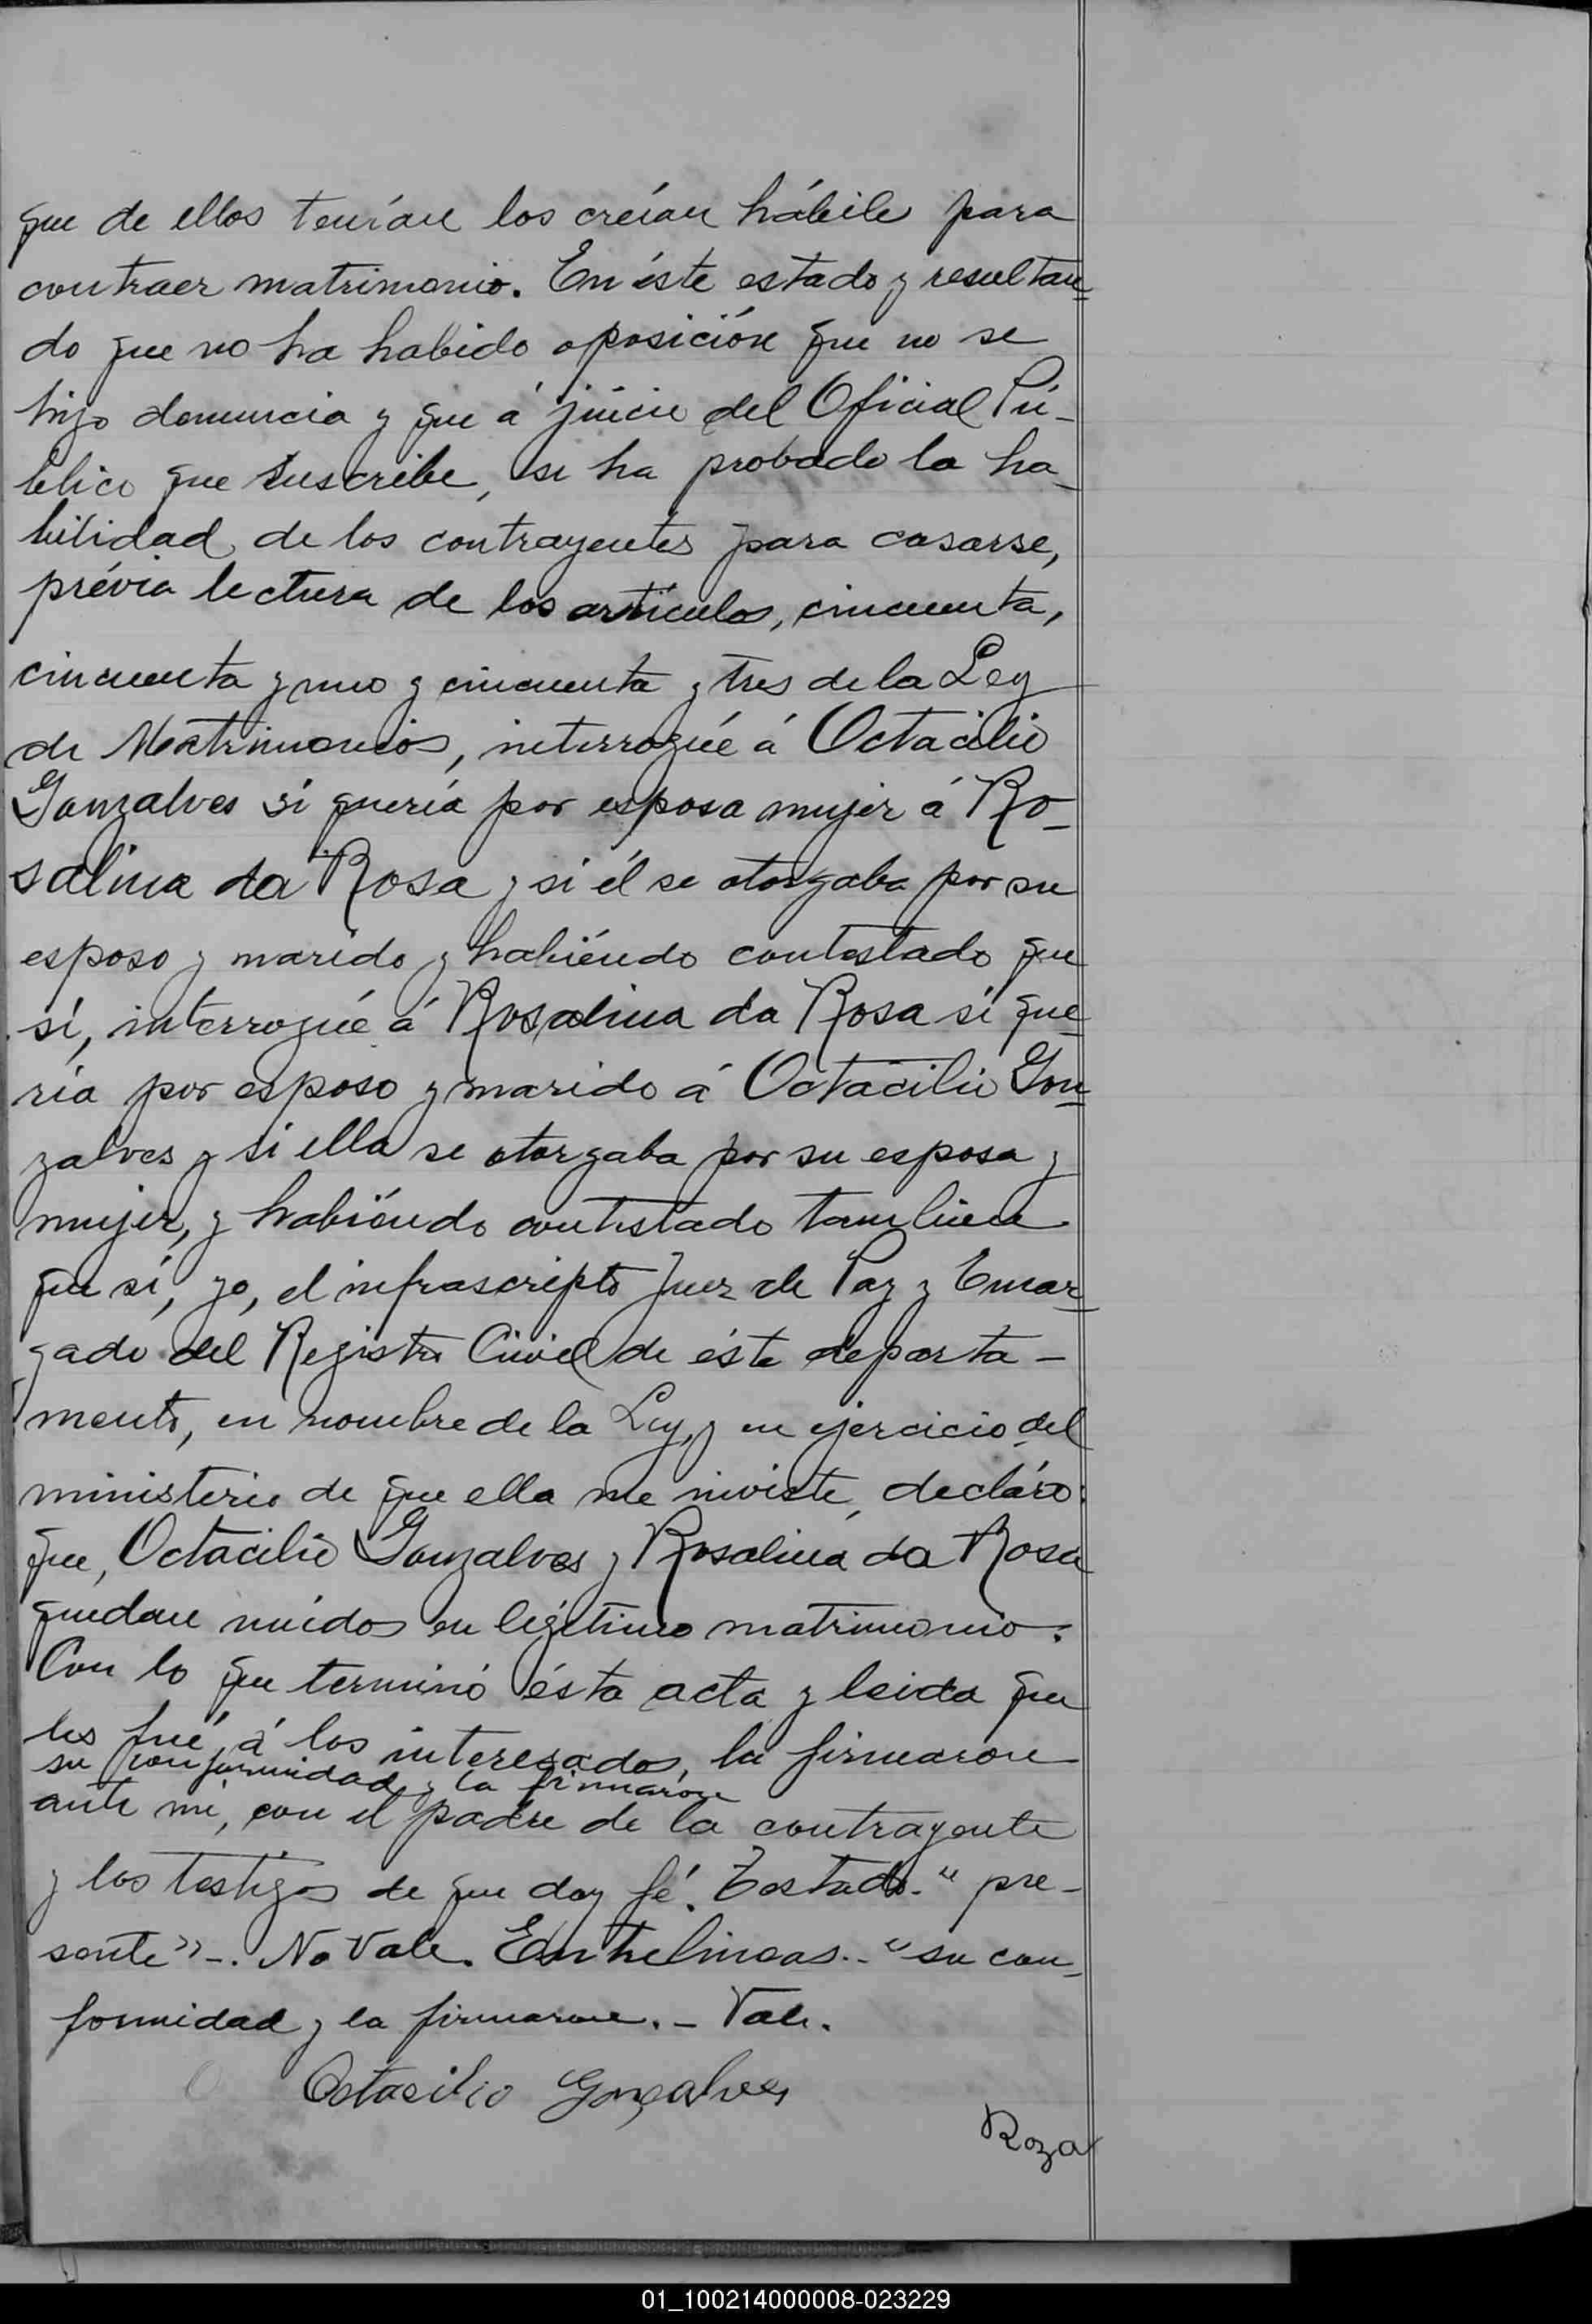 que de ellos tenían los creían hábile para
contraer matrimonio. En éste estado y resultan=
do que no ha habido oposición que no se
hizo denuncia y que á juicio del Oficial Pú-
blico que suscribe, se ha probado la ha-
bilidad de los contrayentes para casarse,
prévia lectura de los artículos, cincuenta,
cincuenta y uno y cincuenta y tres de la Ley
de Matrimonios, interrogué á Octacilio
Gonzalves si quería por esposa mujer á Ro-
salina da Rosa y si él se otorgaba por su
esposo y marido y habiéndo contestado que
sí, interrogué á Rosalina da Rosa si que-
ría por esposo y marido á Octacilio Gon=
zalves y si ella se otorgaba por su esposa y
mujer, y habiéndo contestado tambien
que sí, yo, el infrascripto Juez de Paz y Encar=
gado del Registro Civil de éste departa-
mento, en nombre de la Ley, y en ejercicio del
ministerio de que ella me inviste, decláro:
que, Octacilio Gonzalves y Rosalina da Rosa
quedan unidos en legítimo matrimonio.
Con lo que terminó ésta acta y leida que
les fué, á los interesados, la firmaron
su conformidad y la firmaron
ante mí, con el padre de la contrayente
y los testigos de que doy fé. Testado. "pre-
sente"-. No Vale. Entrelineas.- "su con-
formidad y la firmaron.- Vale.
Octacilio Gonçalves
Roza
01_100214000008-023229